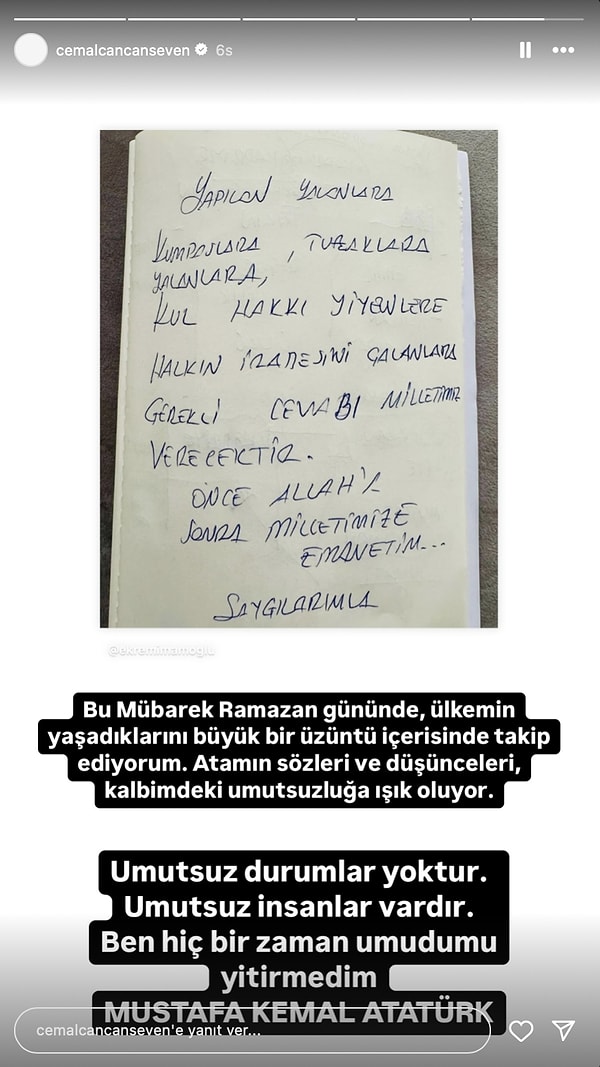 cemalcancanseven 6s
YAPILAN YALANLARA
KUMPASLARA, TUZAKLARA
YALANLARA,
KUL HAKKI YİYENLERE
HALKIN İRADESİNİ ÇALANLARA
GEREKLİ CEVABI MİLLETİMİZ
VERECEKTİR.
ÖNCE ALLAH'A
SONRA MİLLETİMİZE
EMANETİM...
SAYGILARIMLA
@ekremimamoglu
Bu Mübarek Ramazan gününde, ülkemin
yaşadıklarını büyük bir üzüntü içerisinde takip
ediyorum. Atamın sözleri ve düşünceleri,
kalbimdeki umutsuzluğa ışık oluyor.
Umutsuz durumlar yoktur.
Umutsuz insanlar vardır.
Ben hiç bir zaman umudumu
yitirmedim
MUSTAFA KEMAL ATATÜRK
cemalcancanseven'e yanıt ver...